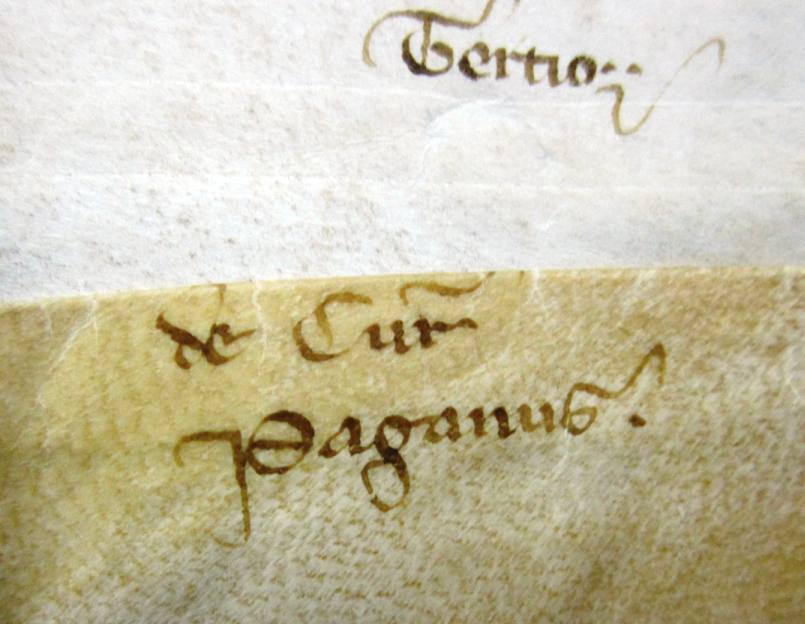 Tertio
de Cur̃
Paganus.